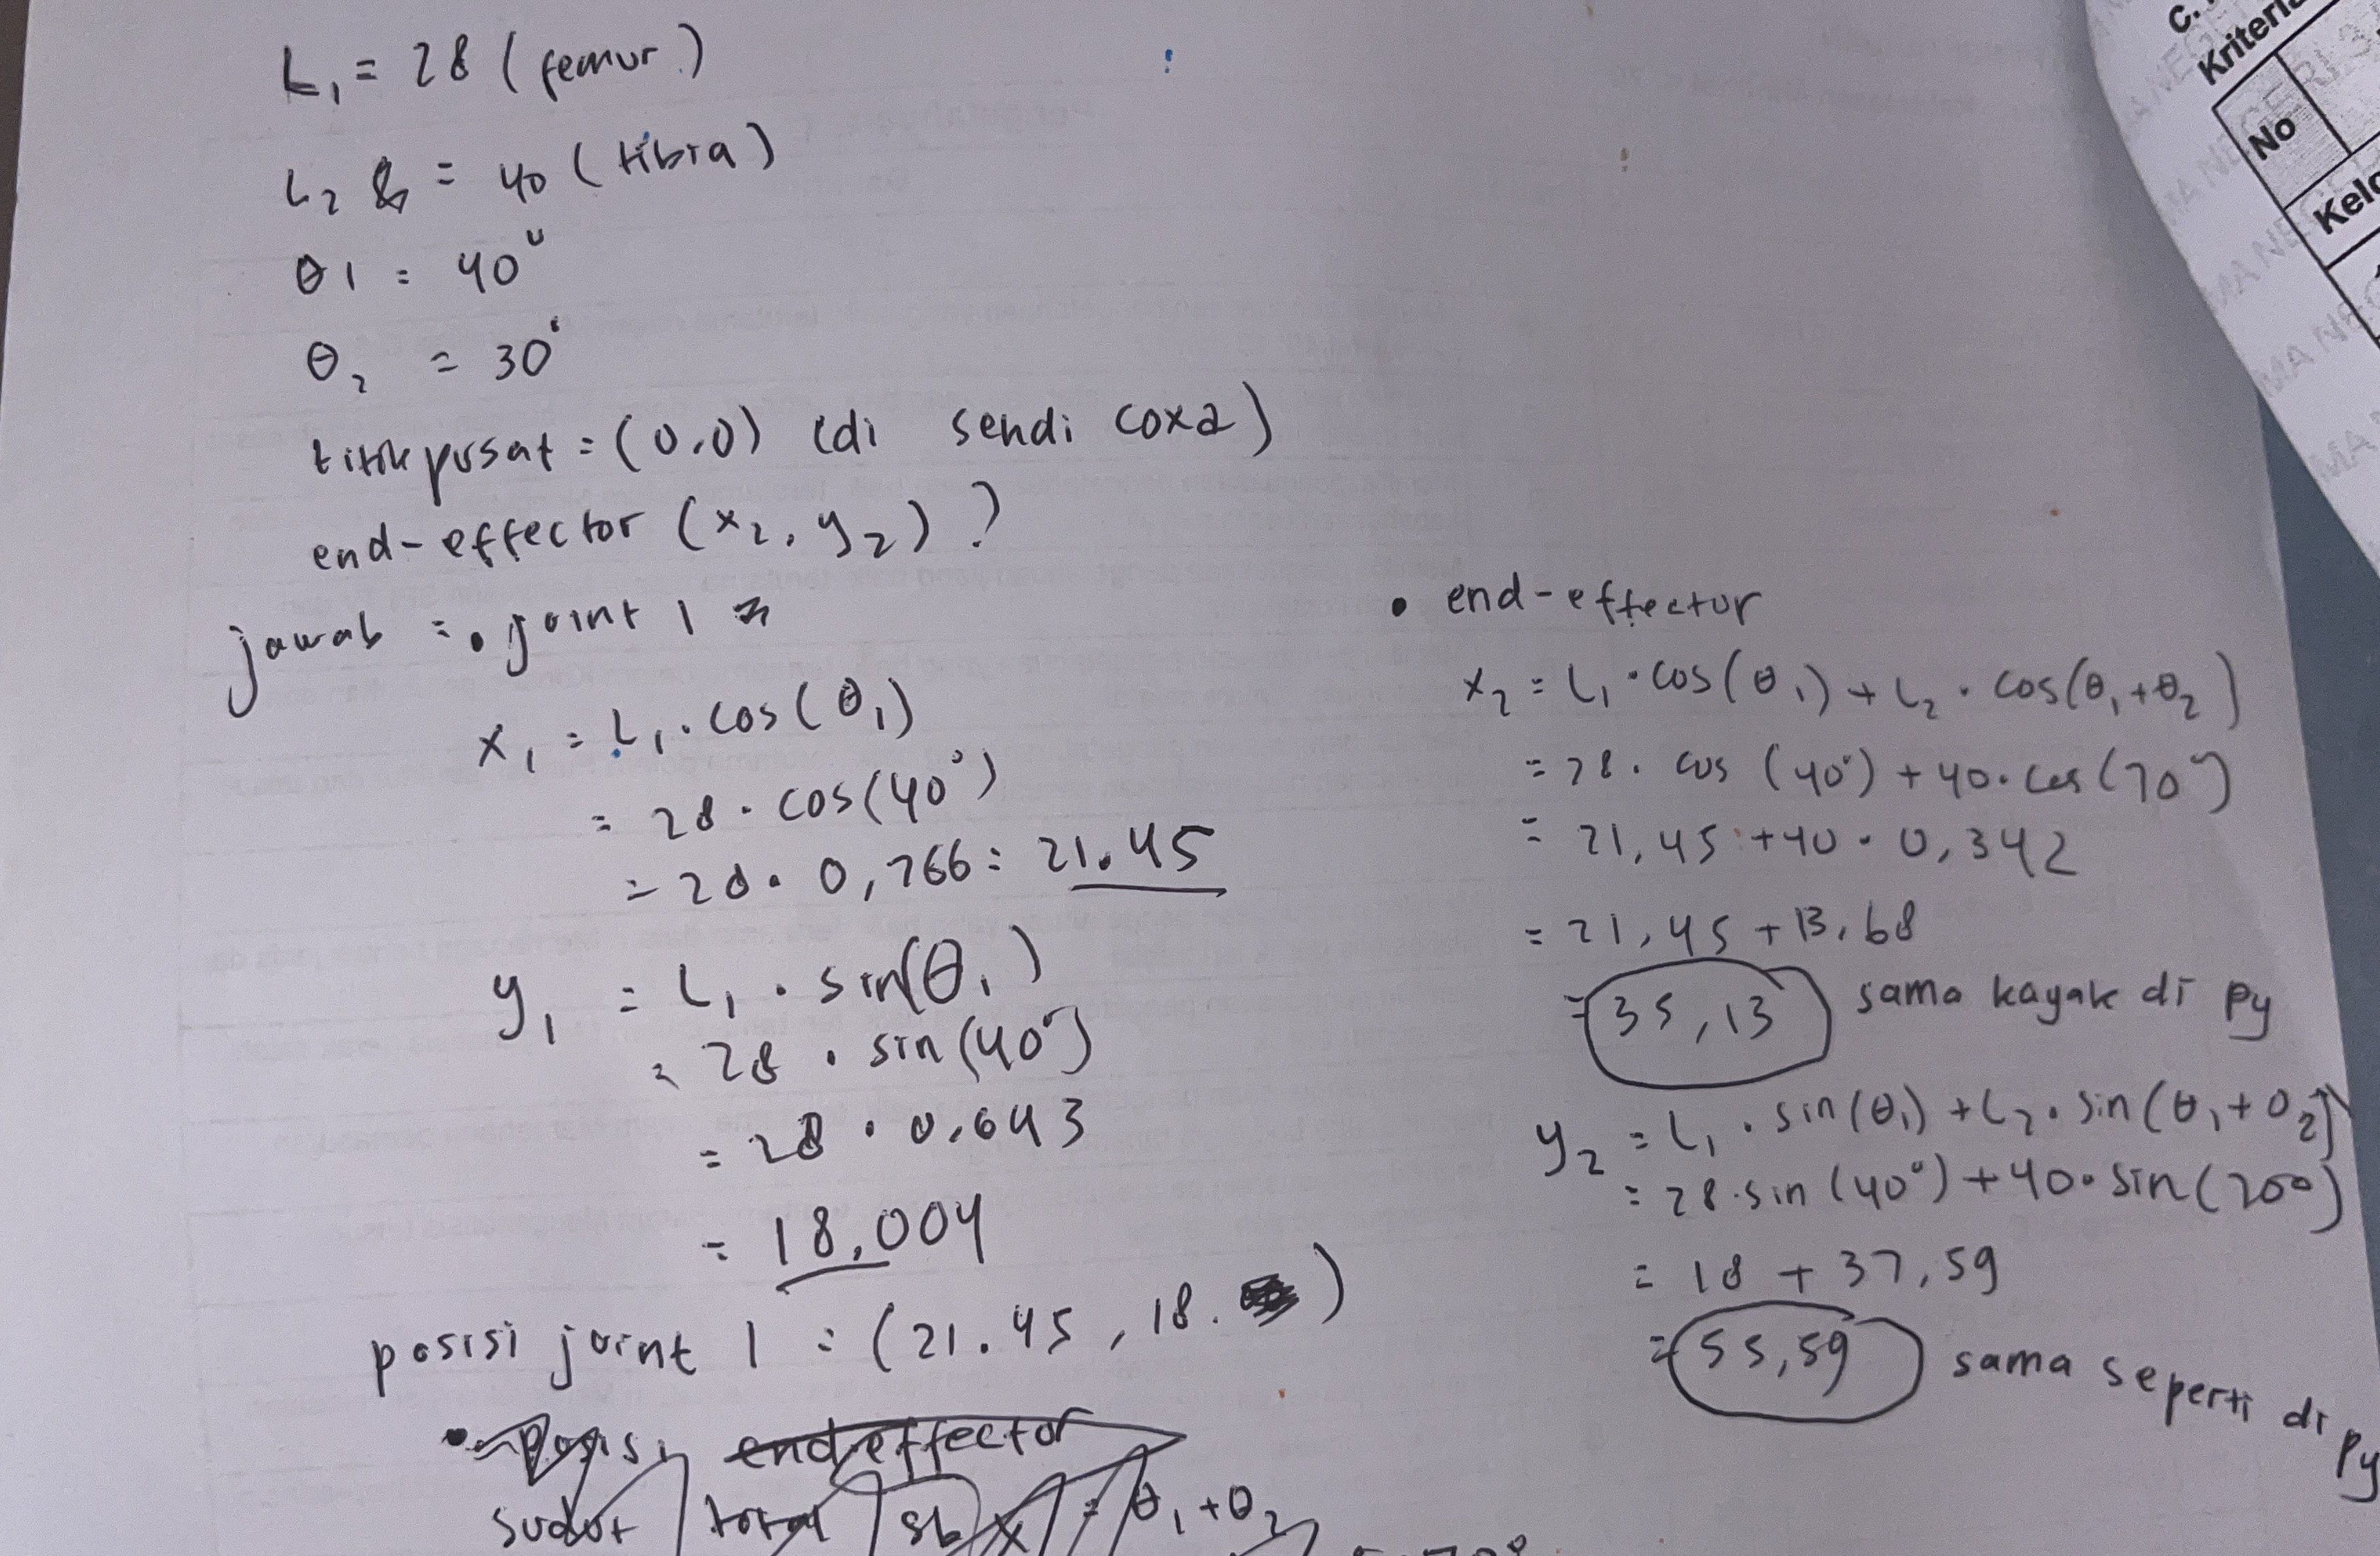 L₁ = 28 (femur)
L₂ = 40 (tibia)
θ1 = 40°
θ₂ = 30°
titik pusat = (0,0) (di sendi coxa)
end-effector (x₂, y₂) ?
jawab = • joint 1
x₁ = L₁ . cos(θ₁)
= 28 . cos(40°)
= 28 . 0,766 = 21.45
y₁ = L₁ . sin(θ₁)
= 28 . sin(40°)
= 28 . 0,643
= 18,004
posisi joint 1 = (21.45, 18. )
• posisi end effector
sudut total = θ₁ + θ₂
• end-effector
x₂ = L₁ . cos(θ₁) + L₂ . cos(θ₁ + θ₂)
= 28 . cos (40°) + 40 . cos (70°)
= 21,45 + 40 . 0,342
= 21,45 + 13,68
= 35,13 sama kayak di py
y₂ = L₁ . sin(θ₁) + L₂ . sin(θ₁ + θ₂)
= 28 . sin (40°) + 40 . sin(70°)
= 18 + 37,59
= 55,59 sama seperti di py
C.
No